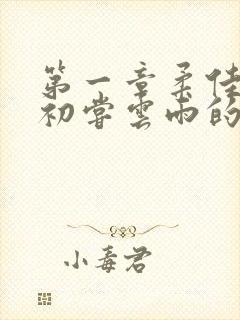 第一章柔佳
初尝雲雨的
小毒君